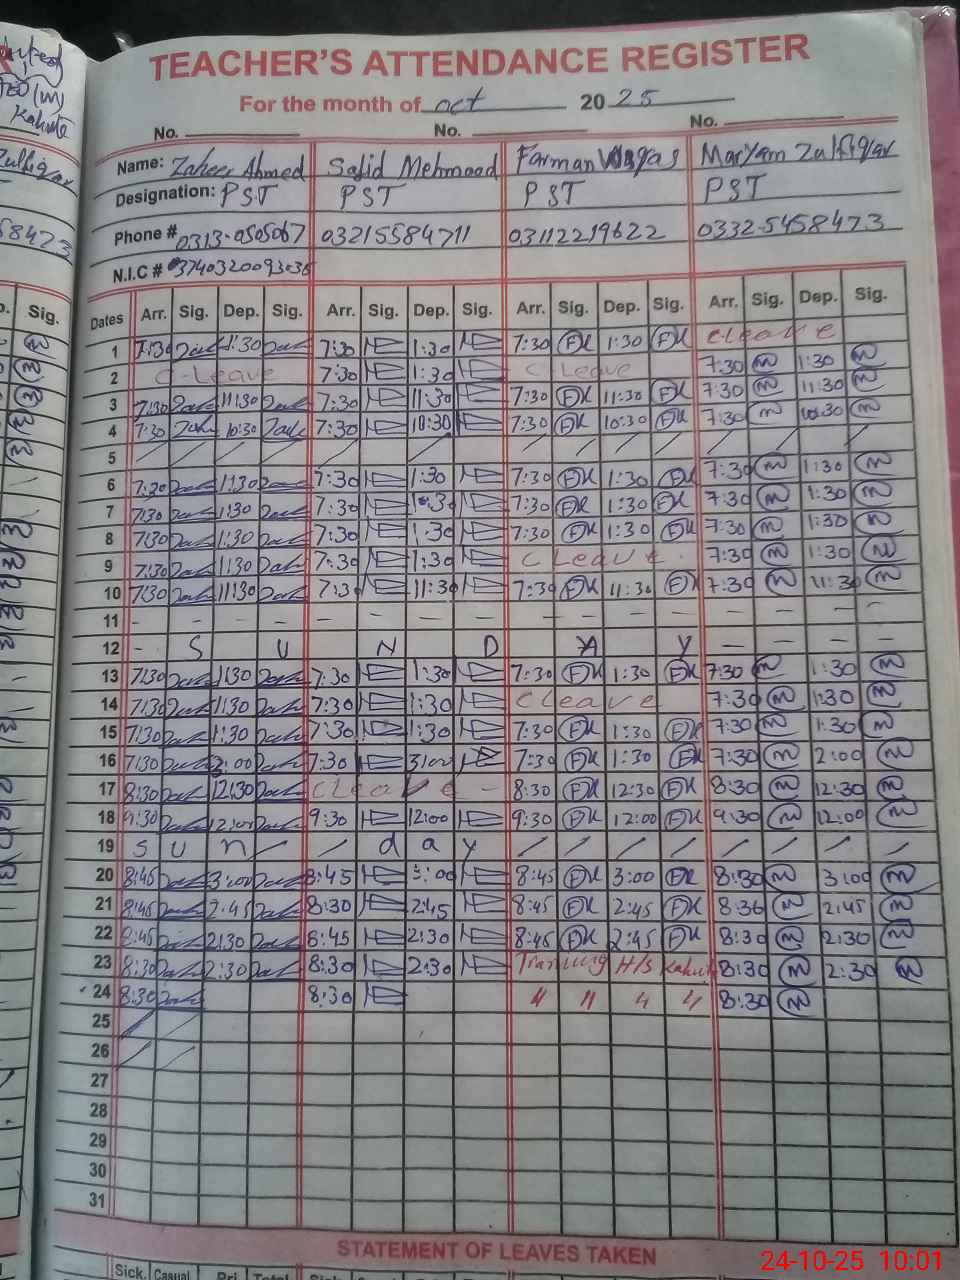 TEACHER'S ATTENDANCE REGISTER
For the month of oct 20 25
No. No. No.
Name: Zaheer Ahmed Sajid Mehmood Farman Maryam Zulfiqar
Designation: PST PST PST PST
Phone # 0313-0505067 03215584711 03112219622 0332-5458473
N.I.C #
Dates Arr. Sig. Dep. Sig. Arr. Sig. Dep. Sig. Arr. Sig. Dep. Sig. Arr. Sig. Dep. Sig.
1 7:30 Zah 1:30 Zah 7:30 1:30 7:30 FK 1:30 FK C Leave
2 C-Leave 7:30 1:30 C Leave 7:30 m 1:30 m
3 7:30 Zah 11:30 Zah 7:30 11:30 7:30 FK 11:30 FK 7:30 m 11:30 m
4 7:30 Zah 10:30 Zah 7:30 10:30 7:30 FK 10:30 FK 7:30 m 10:30 m
5 / / / / / / / / / / / / / /
6 7:30 Zah 1:30 Zah 7:30 1:30 7:30 FK 1:30 FK 7:30 m 1:30 m
7 7:30 Zah 1:30 Zah 7:30 1:30 7:30 FK 1:30 FK 7:30 m 1:30 m
8 7:30 Zah 1:30 Zah 7:30 1:30 7:30 FK 1:30 FK 7:30 m 1:30 m
9 7:30 Zah 1:30 Zah 7:30 1:30 C Leave 7:30 m 1:30 m
10 7:30 Zah 11:30 Zah 7:30 11:30 7:30 FK 11:30 FK 7:30 m 11:30 m
11 - - - - - - - - - - - - - -
12 - S U N D A Y - - - -
13 7:30 Zah 1:30 Zah 7:30 1:30 7:30 FK 1:30 FK 7:30 m 1:30 m
14 7:30 Zah 1:30 Zah 7:30 1:30 C Leave 7:30 m 1:30 m
15 7:30 Zah 1:30 Zah 7:30 1:30 7:30 FK 1:30 FK 7:30 m 1:30 m
16 7:30 Zah 3:00 Zah 7:30 3:00 7:30 FK 1:30 FK 7:30 m 2:00 m
17 8:30 Zah 12:30 Zah C Leave - 8:30 FK 12:30 FK 8:30 m 12:30 m
18 9:30 Zah 12:00 Zah 9:30 12:00 9:30 FK 12:00 FK 9:30 m 12:00 m
19 S u n / / d a y / / / / / / / /
20 8:45 Zah 3:00 Zah 8:45 3:00 8:45 FK 3:00 FK 8:30 m 3:00 m
21 8:45 Zah 2:45 Zah 8:30 2:45 8:45 FK 2:45 FK 8:30 m 2:45 m
22 8:45 Zah 2:30 Zah 8:45 2:30 8:45 FK 2:45 FK 8:30 m 2:30 m
23 8:30 Zah 2:30 Zah 8:30 2:30 Training H/S Kahut 8:30 m 2:30 m
24 8:30 Zah 8:30 " " " " 8:30 m
25
26
27
28
29
30
31
STATEMENT OF LEAVES TAKEN
Sick. Casual Pri. Total
24-10-25 10:01